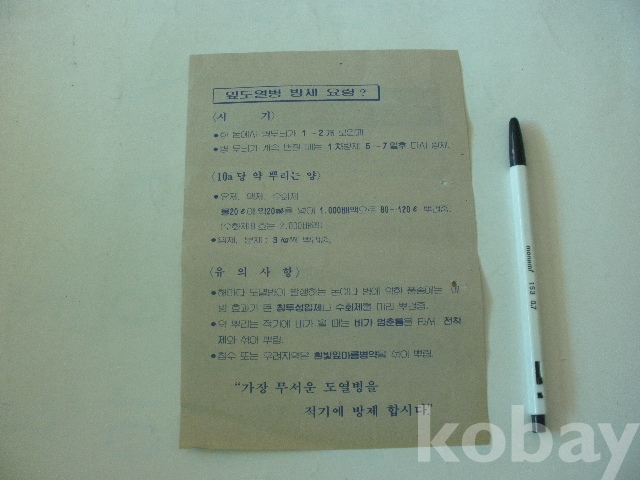 잎도열병 방제 요령?
(시 기)
●이 논에서 병무늬가 1~2개 보일때
●병 무늬가 계속 번질 때는 1차방제 5~7일후 다시 방제.
(10a당 약 뿌리는 양)
●유제, 액제, 수화제
물20ℓ에 약20㎖를 넣어 1,000배액으로 80~120ℓ 뿌려줌.
●입제, 분제: 3㎏씩 뿌려줌.
(유 의 사 항)
●해마다 도열병이 발생하는 논이나 병에 약한 품종에는
방 효과가 큰 침투성입제나 수화제를 미리 뿌려줌.
●약 뿌리는 적기에 비가 올 때는 비가 멈춘틈을 타서, 전착
제와 섞어 뿌림.
●침수 또는 우려지역은 흰빛잎마름병약을 섞어 뿌림.
"가장 무서운 도열병을
적기에 방제 합시다"
monami 153 0.7
kobay